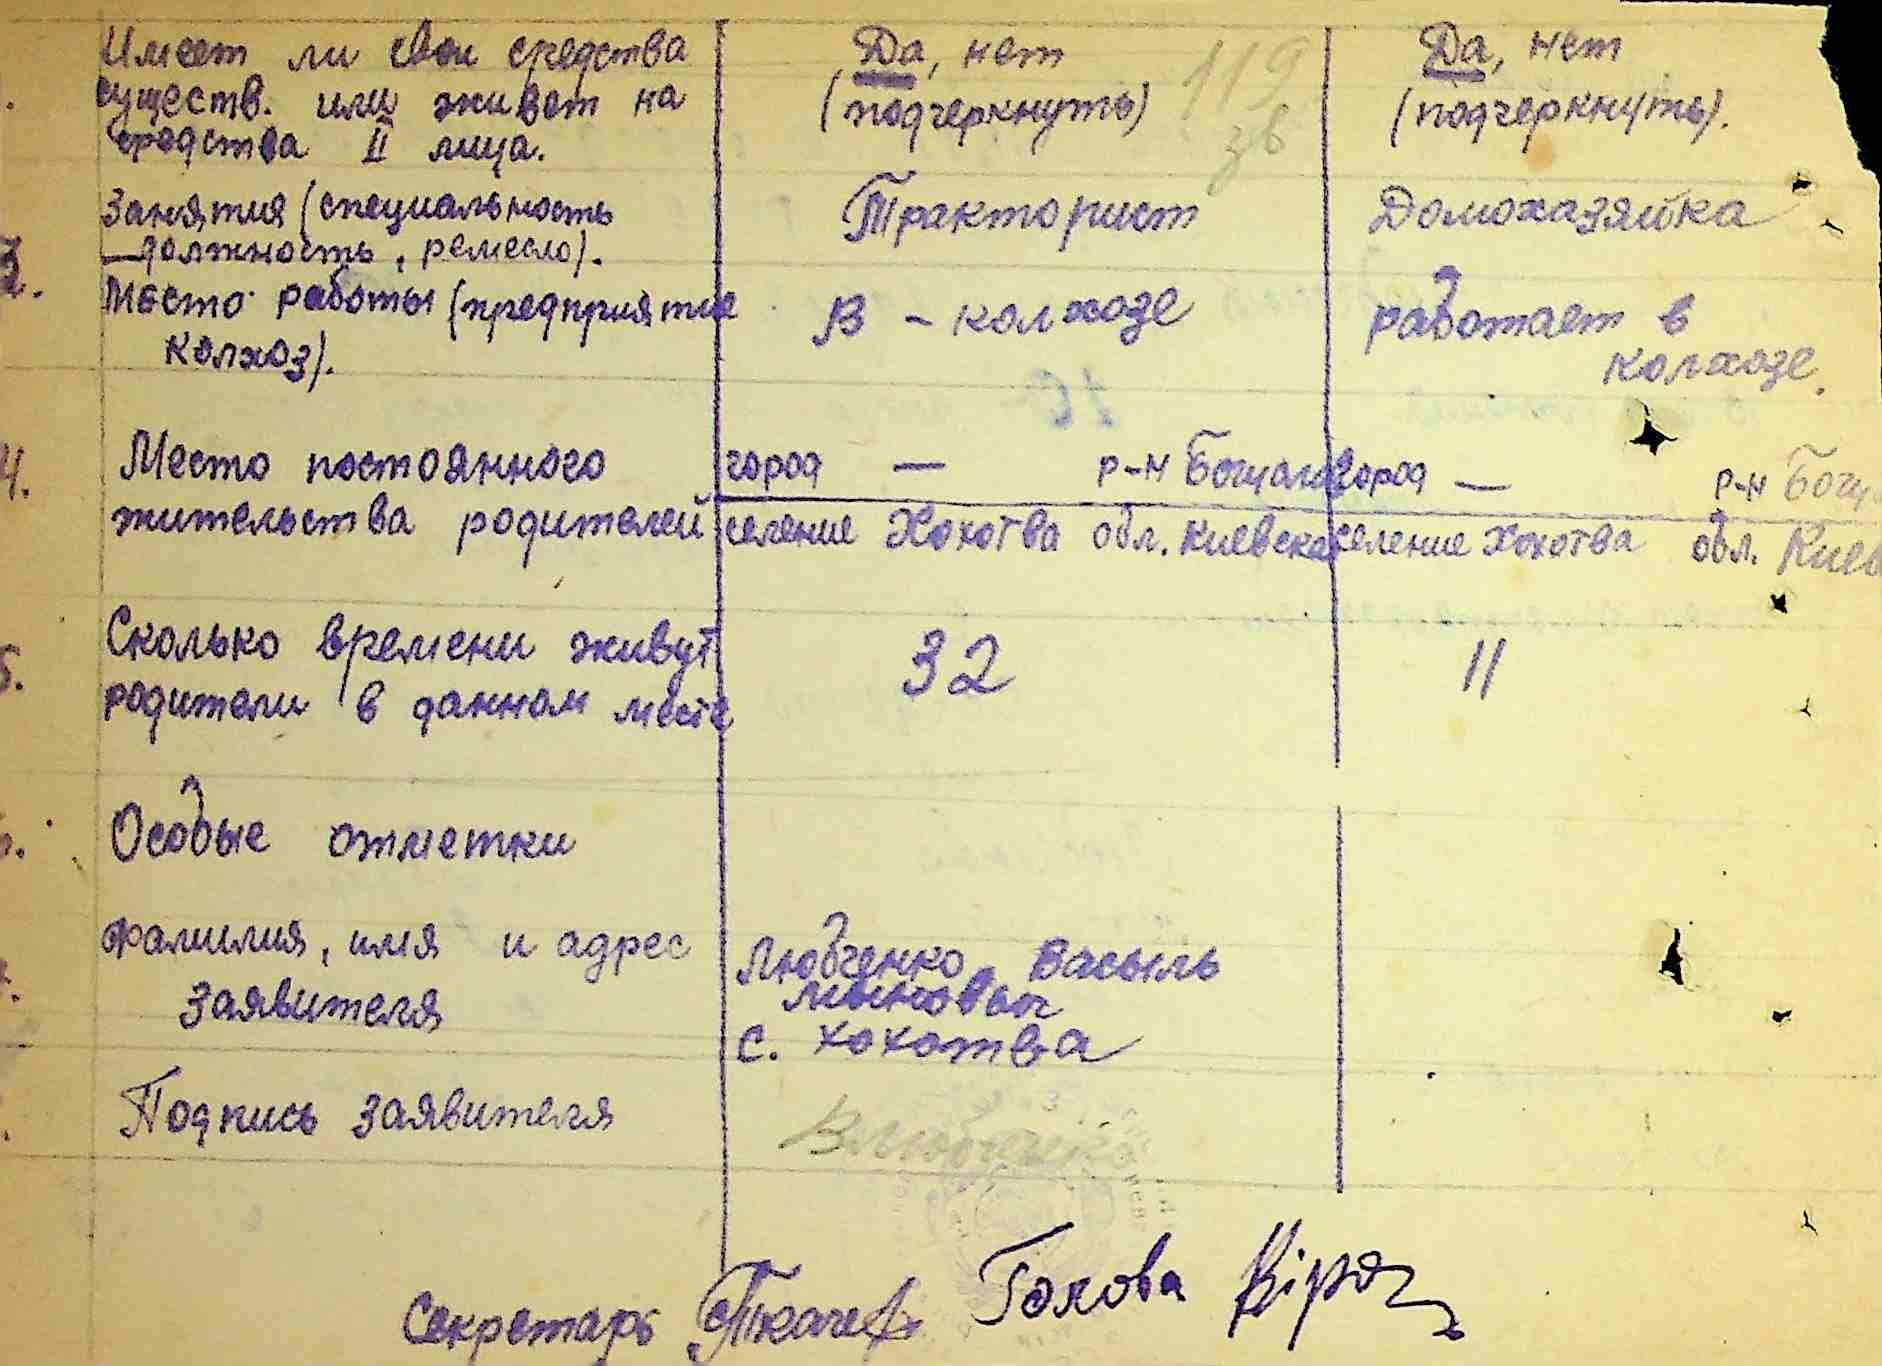 Имеет ли свои средства
существ. или живет на
средства II лица.
Да, нет
(подчеркнуть)
119
зв
Да, нет
(подчеркнуть).
Занятия (специальность
должность, ремесло).
Трактористь
Домохазяйка
3.
Место работы (предприятие
колхоз).
В - колхозе
работает в
колхозе.
4.
Место постоянного
жительства родителей
город — р-н
селение Хохотва обл. Киевска
город — р-н Богу
селение Хохотва обл. Киев
5.
Сколько времени живут
родители в данном месте
32
11
Особые отметки
Фамилия, имя и адрес
заявителя
Любченко Васыль
с. Хохотва
Подпись заявителя
Секретарь Голова